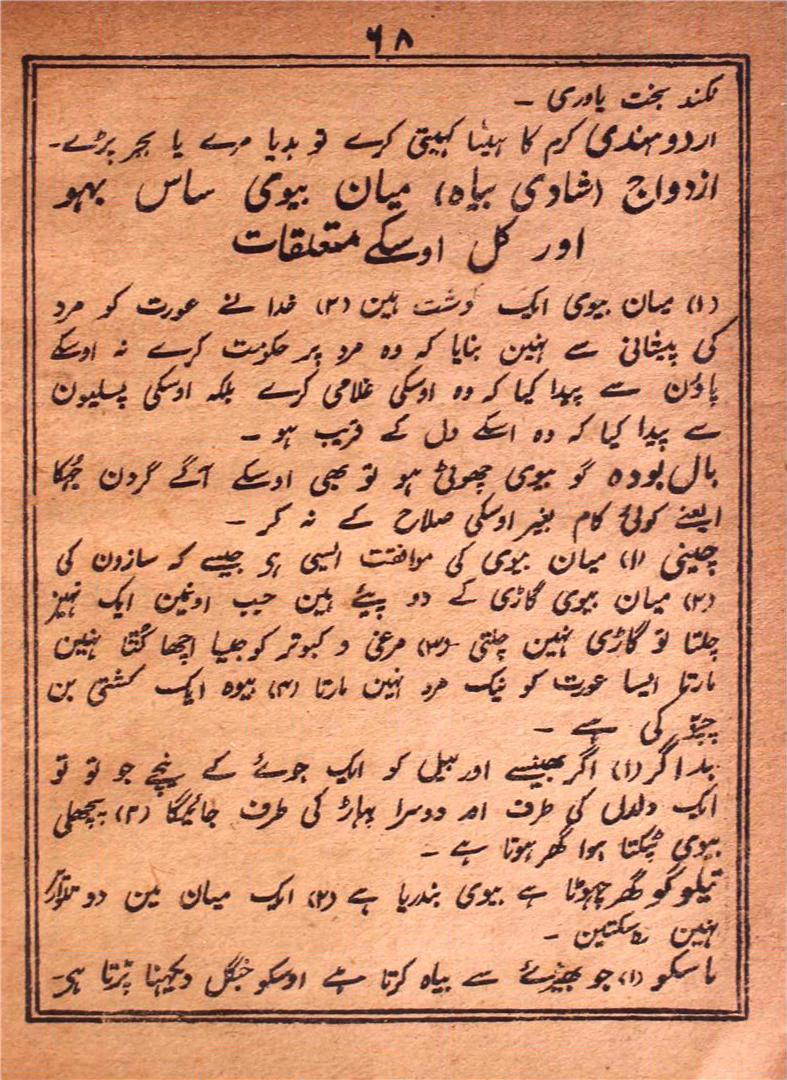 ۶۸
نکند بخت یاوری ۔
اردو ہندی کرم کا ہیٹا کہیتی کرے تو بدہیا مرے یا بجر پڑے۔
ازدواج (شادی بیاہ) میان بیوی ساس بہو
اور کل اوسکے متعلقات
(۱) میان بیوی ایک گوشت ہین (۲) خدا نے عورت کو مرد
کی پیشانی سے نہین بنایا کہ وہ مرد پر حکومت کرے نہ اوسکے
پاؤن سے پیدا کیا کہ وہ اوسکی غلامی کرے بلکہ اوسکی پسلیون
سے پیدا کیا کہ وہ اسکے دل کے قریب ہو ۔
بال بودہ گو بیوی چھوٹی ہو تو بھی اوسکے آگے گردن جُہکا
یعنے کوئی کام بغیر اوسکی صلاح کے نہ کر ۔
چینی (۱) میان بیوی کی موافقت ایسی ہو جیسے کہ سازون کی
(۲) میان بیوی گاڑی کے دو پہیے ہین جب اونمین ایک نہیز
چلتا تو گاڑی نہین چلتی (۳) مرغی و کبوتر کو جیسا اچھا کُتّا نہین
مارتا ایسا عورت کو نیک مرد نہین مارتا (۴) بیوہ ایک کشتی بن
چپّو کی ہے ۔
بداگر (۱) اگر بھینسے اور بیل کو ایک جوئے کے نیچے جو تو تو
ایک دلدل کی طرف اور دوسرا پہاڑ کی طرف جائیگا (۲) پچھلی
بیوی ٹپکتا ہوا گھر ہوتا ہے ۔
تیلوگو گھر چہوٹا ہے بیوی بندریا ہے (۲) ایک میان مین دو تلوار
نہین رہ سکتین ۔
باسکو (۱) جو بھیڑئے سے بیاہ کرتا ہے اوسکو جنگل دیکہنا پڑتا ہی۔